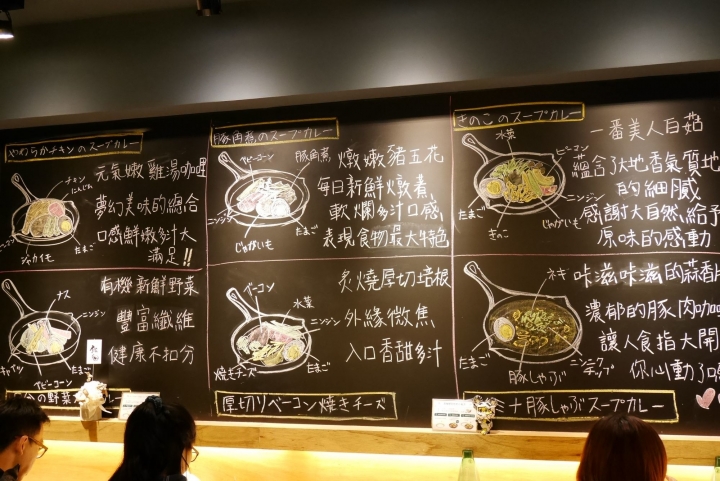 やわらかチキンのスープカレー
チキン
にんじん
たまご
ジャガイモ
元氣嫩雞湯咖哩
夢幻美味的總合
口感鮮嫩多汁大
滿足!!
豚角煮のスープカレー
ベビーコーン
豚角煮
ニンジン
たまご
じゃがいも
燉嫩豬五花
每日新鮮燉煮,
軟爛多汁口感,
表現食物最大特色
きのこのスープカレー
水菜
ベビーコーン
ニンジン
じゃがいも
たまご
きのこ
一番美人白菇
蘊含了大地香氣質地
的細膩
感謝大自然,給予
原味的感動
ナス
ニンジン
たまご
ベビーコーン
キャベツ
有機新鮮野菜
豐富纖維
健康不扣分
の野菜
ベーコン
水菜
ニンジン
たまご
焼きチーズ
炙燒厚切培根
外緣微焦
入口香甜多汁
厚切りベーコン焼きチーズ
ネギ
たまご
豚しゃぶ
ニンニク
チップ
咔滋咔滋的蒜香
濃郁的豚肉咖
讓人食指大開
你心動了嗎
豚しゃぶスープカレー